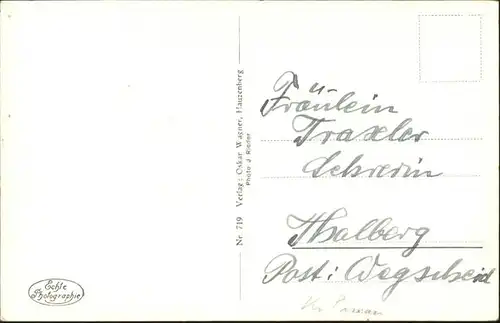 Fräulein
Traxler
Lehrerin
Thalberg
Post: Wegscheid
Nr. 719 Verlag: Oskar Wagner, Hauzenberg
Photo J. Rieder
Echte
Photographie